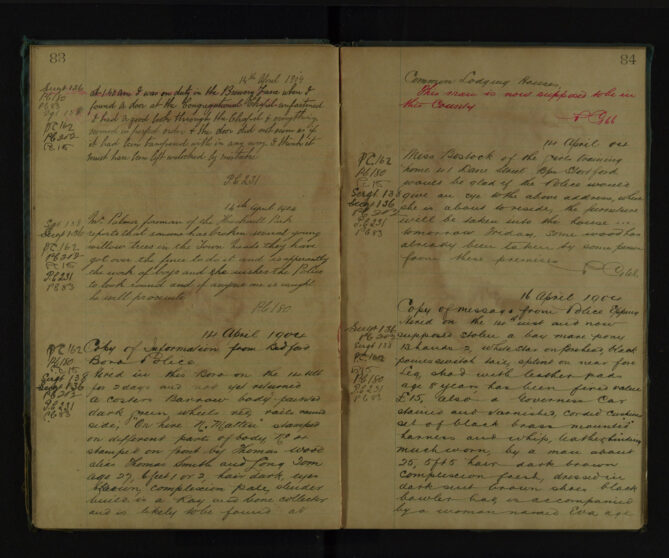 83
14th April 1904
Sergt 136
PC 180
PC 83
PC 162
PC 202
PC 15
at 1.40am I was on duty in the when I
found a door at the Congregational Chapel unfastened
I had a good look through the Chapel & everything
seemed in perfect order & the door did not seem as if
it had been tampered with in any way & I think it
must have been left unlocked by mistake
PC 231
14th April 1904
Sergt 136
PC 162
PC 202
PC 15
PC 231
PC 83
Mr foreman of the
reports that someone has broken several young
willow trees in the Town they have
got over the fence to do it and is apparently
the work of boys and wishes the Police
to look round and if anyone is caught
he will prosecute
PC 180
14 April 1904
PC 162
PC 180
PC 15
Sergt 138
Sergt 136
PC 202
PC 231
PC 83
Copy of information from Bedford
Boro Police
Hired in this Boro on the inst
for 2 days and not yet returned
a costers Barrow body painted
dark green wheels red rails round
side, "On hire N. Matten" stamped
on different parts of body No
stamped on front by Thomas
alias Thomas Smith and Long Tom
age 27, 6 feet 1 or 2, hair dark, eyes
brown, complexion pale, slender
build is a Rag and bone collector
and is likely to be found at
84
Common Lodging Houses,
This man is now supposed to be in
this County
14 April 04
PC 162
PC 180
PC 15
Sergt 138
Sergt 136
PC 202
PC 231
PC 83
Miss Bostock of the Girls training
home Lane Street Bps Stortford
would be glad if the Police would
give an eye to the above address, when
she is about to reside, the furniture
will be taken into the house
tomorrow Friday, some wood has
already been taken by some person
from these premises
16 April 1904
Sergt 136
PC 202
Sergt 138
PC 162
PC 15
PC 180
PC 231
PC 83
Copy of message from Police Epping
Hired on the 14th inst and now
supposed stolen a bay mare pony
13 hands 2, white star on forehead black
points switch tail, splent on near fore
leg, shod with leather pads
age 8 years has been fired value
£15, also a Governess Car
stained and varnished, corded Cushions
set of black brass mounted
harness and whip, leather
much worn, by a man about
25, 5ft 5 hair dark brown
complexion fresh, dressed in
dark suit brown shoes black
bowler hat, is accompanied
by a woman named Eva age